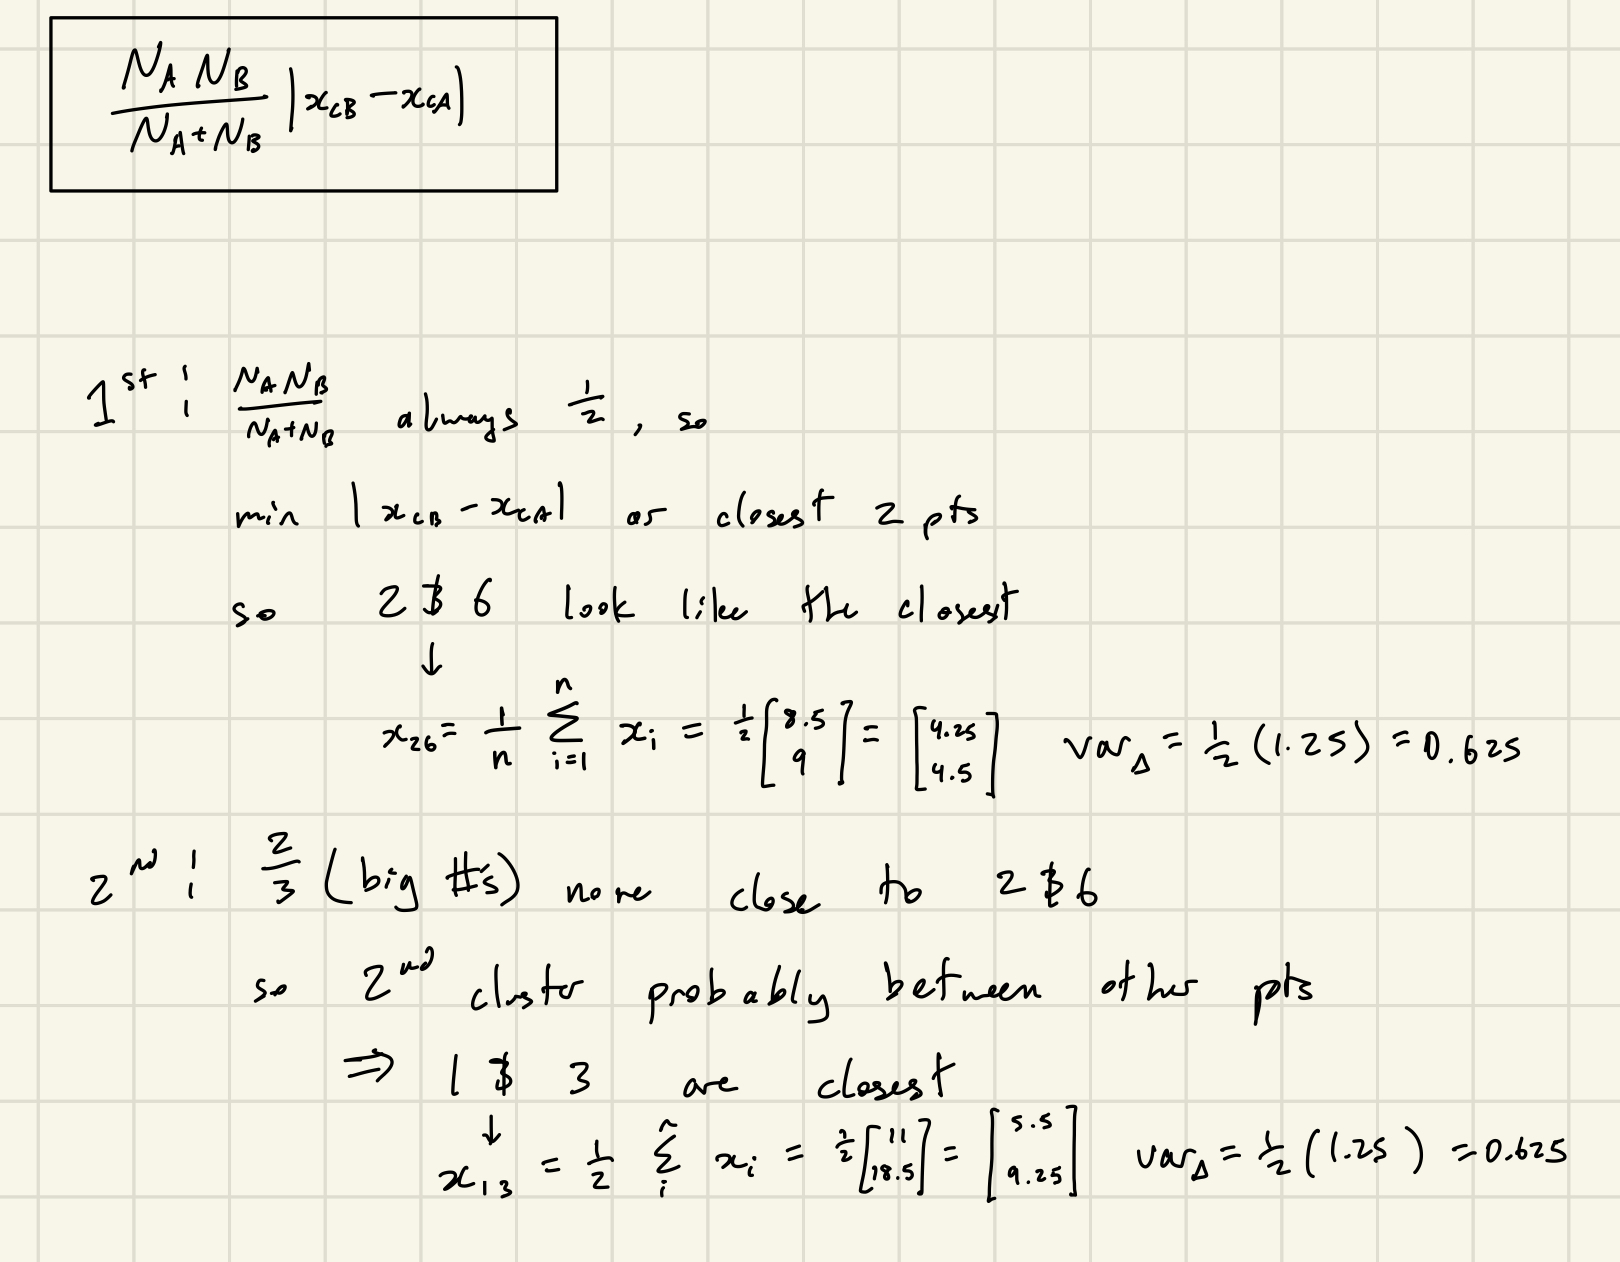 N_A N_B / (N_A + N_B) |x_{cB} - x_{cA}|
1st : N_A N_B / (N_A + N_B) always 1/2, so
min |x_{cB} - x_{cA}| or closest 2 pts
so 2 & 6 look like the closest
↓
x_{26} = 1/n \sum_{i=1}^{n} x_i = 1/2 [8.5 9] = [4.25 4.5] var_Δ = 1/2 (1.25) = 0.625
2nd : 2/3 (big #s) none close to 2 & 6
so 2nd cluster probably between other pts
⇒ 1 & 3 are closest
↓
x_{13} = 1/2 \sum_{i}^{n} x_i = 1/2 [11 18.5] = [5.5 9.25] var_Δ = 1/2 (1.25) = 0.625